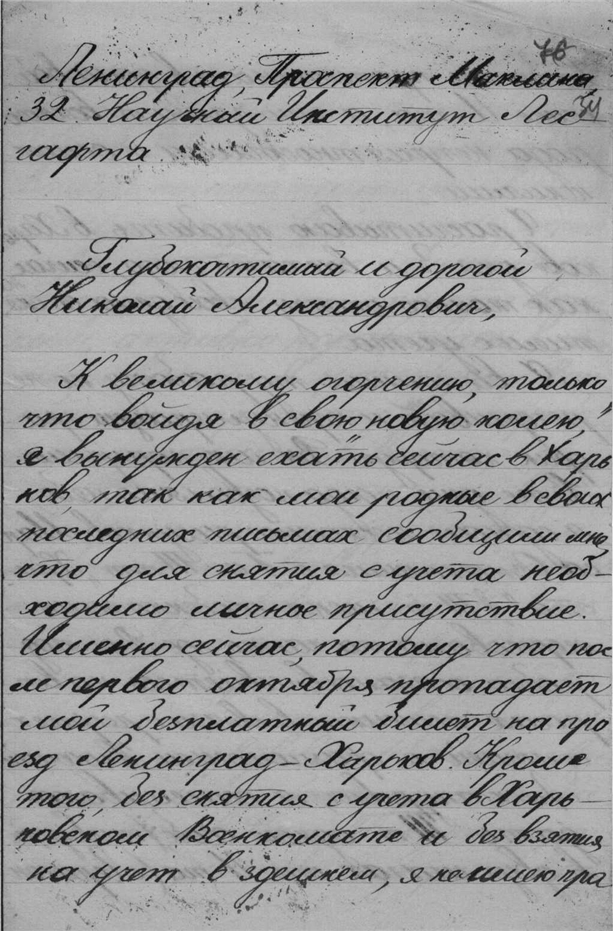 76
Ленинград, Проспект Маклина,
32 Научный Институт Лес
гафта
Глубокочтимый и дорогой
Николай Александрович,
К великому огорчению, только
что войдя в „свою новую колею,"
я вынужден ехать сейчас в Харь
ков, так как мои родные в своих
последних письмах сообщили мне
что для снятия с учета необ-
ходимо личное присутствие.
Именно сейчас, потому что пос
ле первого октября пропадает
мой безплатный билет на про
езд Ленинград-Харьков. Кроме
того, без снятия с учета в Харь-
ковском Военкомате и без взятия
на учет в здешнем, я не имею пра